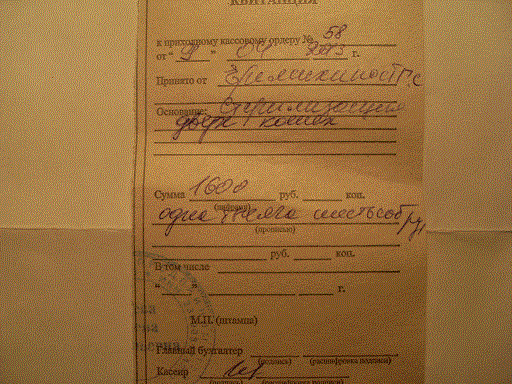 КВИТАНЦИЯ
к приходному кассовому ордеру № 58
от " 9 " 2013 г.
Принято от
Основание: Стерилизация
двух кошек
Сумма 1600 руб. коп.
(цифрами)
одна тысяча шестьсот руб
(прописью)
руб. коп.
В том числе
" " г.
М.П. (штампа)
Главный бухгалтер
(подпись) (расшифровка подписи)
Кассир
(подпись) (расшифровка подписи)